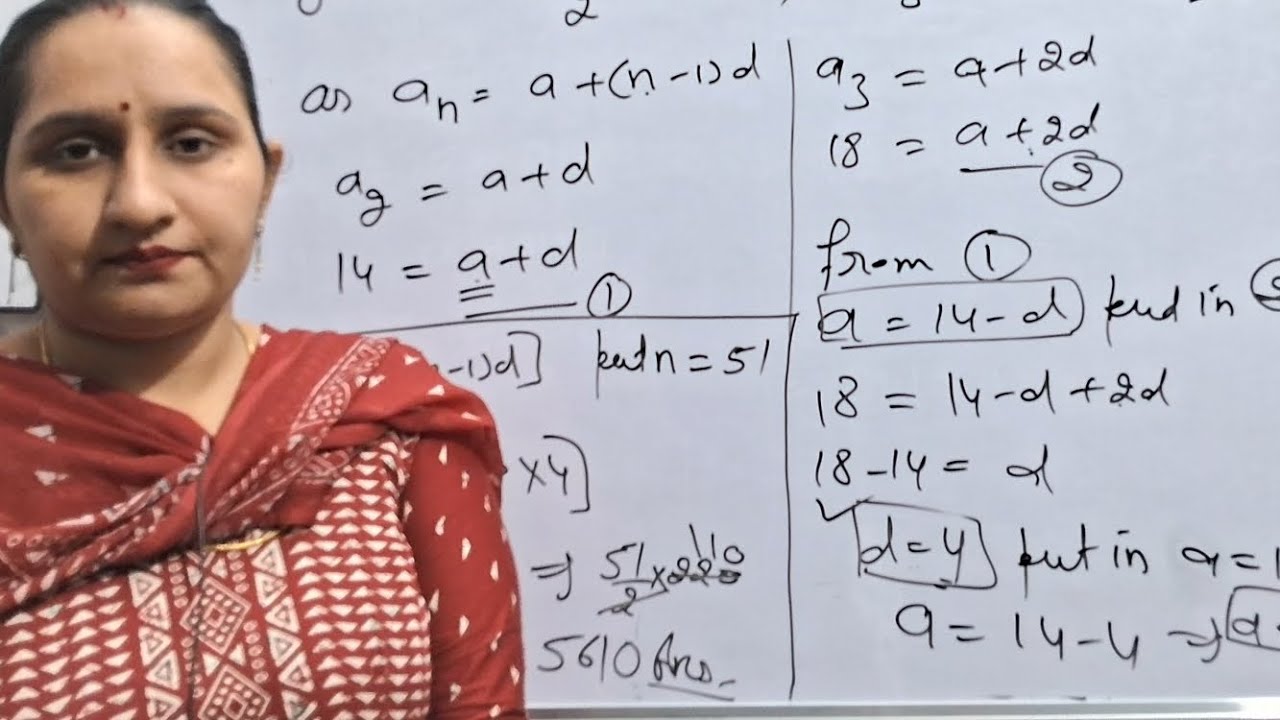 2
as aₙ = a + (n - 1)d
a₂ = a + d
14 = a + d ①
-1)d] put n = 51
× 4]
⇒ 51/2 × 220 110
5610 Ans.
a₃ = a + 2d
18 = a + 2d ②
from ①
a = 14 - d put in
18 = 14 - d + 2d
18 - 14 = d
✓ d = 4 put in a = 1
a = 14 - 4 ⇒ a